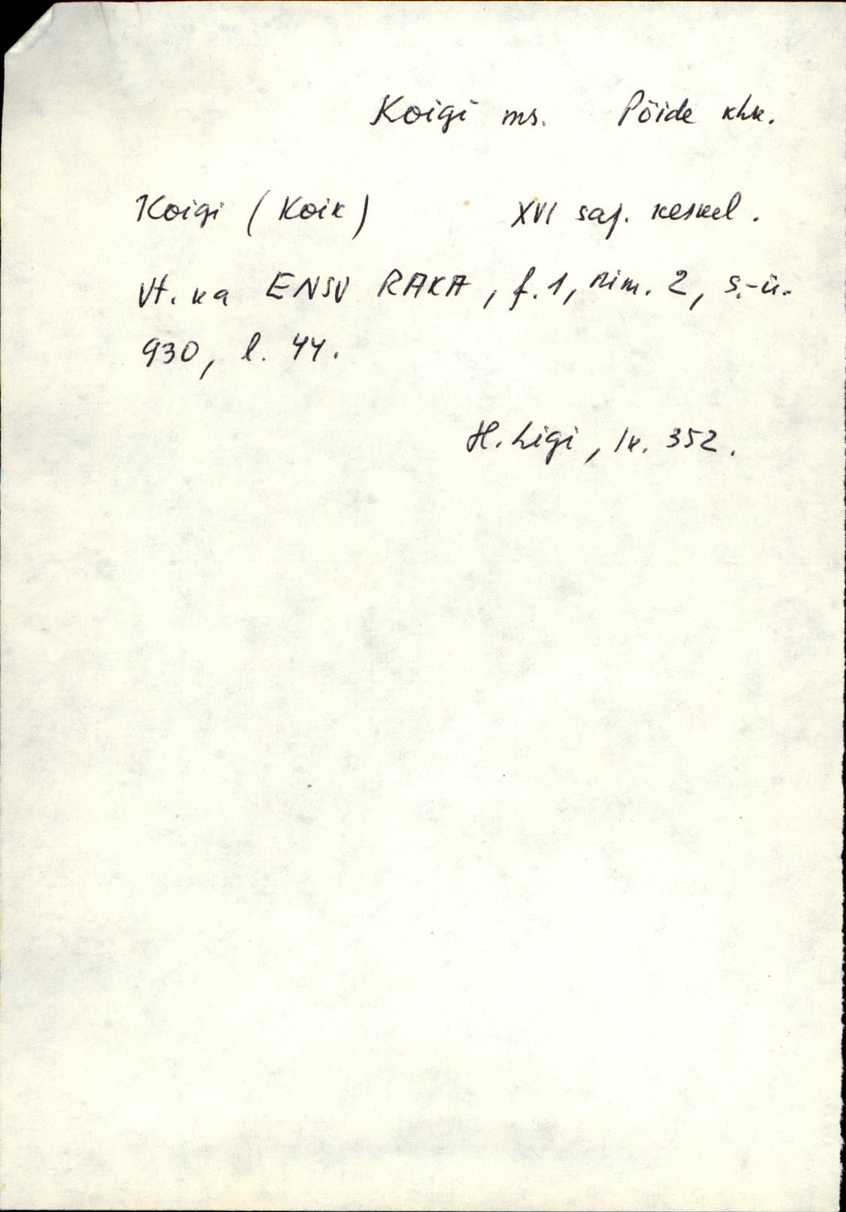 Koigi ms. Pöide khk.
Koigi (Koik) XVI saj. keskel.
Vt. ka ENSV RAKA, f. 1, nim. 2, s.-ü.
930, l. 44.
H. Ligi, lk. 352.